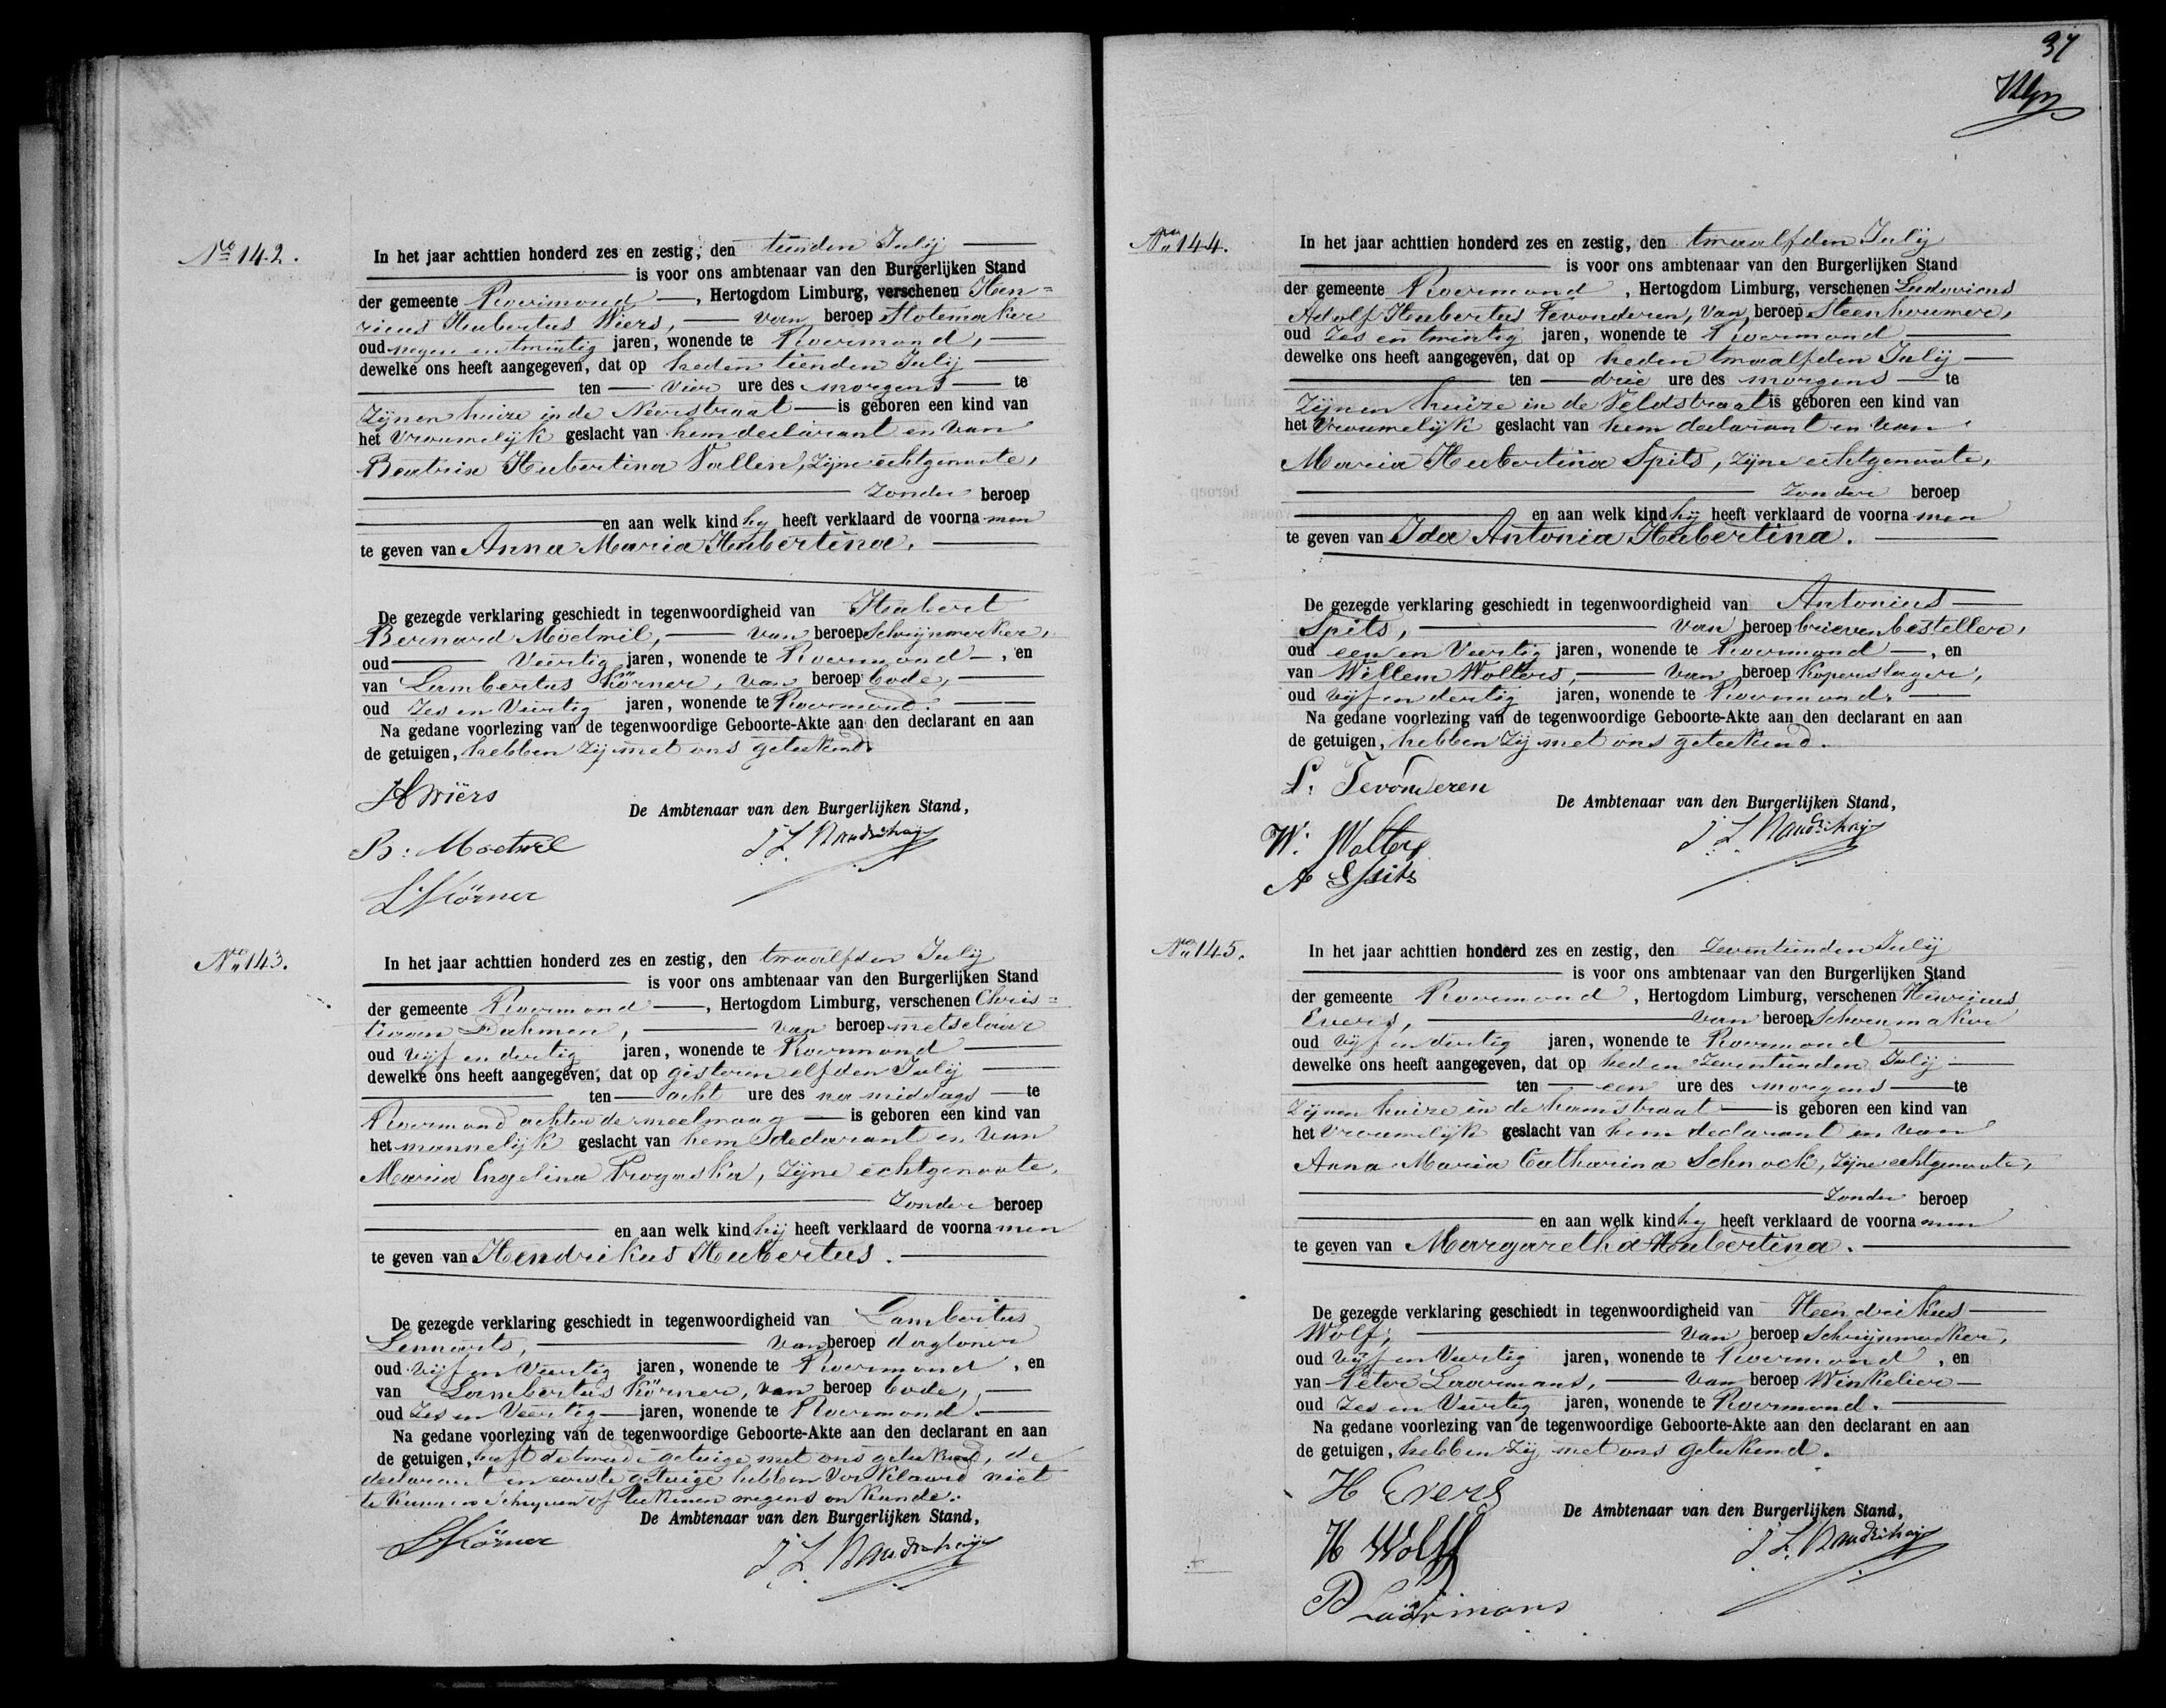 No 142.
In het jaar achttien honderd zes en zestig, den tienden Julij
is voor ons ambtenaar van den Burgerlijken Stand
der gemeente Roermond, Hertogdom Limburg, verschenen Hen=
ricus Hubertus Wiers, van beroep Slotemaker
oud negen en twintig jaren, wonende te Roermond,
dewelke ons heeft aangegeven, dat op heden tienden Julij
ten vier ure des morgens te
zijnen huize in de Neerstraat is geboren een kind van
het vrouwelijk geslacht van hem declarant en van
Beatrix Hubertina Vallen, zijne echtgenoote,
zonder beroep
en aan welk kind hij heeft verklaard de voornamen
te geven van Anna Maria Hubertina.
De gezegde verklaring geschiedt in tegenwoordigheid van Hubert
Bernard Moetwil, van beroep Schrijnwerker,
oud Veertig jaren, wonende te Roermond, en
van Lambertus Körner, van beroep bode,
oud Zes en Veertig jaren, wonende te Roermond.
Na gedane voorlezing van de tegenwoordige Geboorte-Akte aan den declarant en aan
de getuigen, hebben zij met ons geteekend.
H Wiërs
De Ambtenaar van den Burgerlijken Stand,
B: Moetwil
L Körner
No 143.
In het jaar achttien honderd zes en zestig, den twaalfden Julij
is voor ons ambtenaar van den Burgerlijken Stand
der gemeente Roermond, Hertogdom Limburg, verschenen Chris=
tiaan Dahmen, van beroep metselaar
oud vijf en dertig jaren, wonende te Roermond
dewelke ons heeft aangegeven, dat op gisteren elfden Julij
ten acht ure des na middags te
Roermond achter de meelwaag is geboren een kind van
het mannelijk geslacht van hem declarant en van
Maria Engelina, zijne echtgenoote,
zonder beroep
en aan welk kind hij heeft verklaard de voornamen
te geven van Hendrikus Hubertus.
De gezegde verklaring geschiedt in tegenwoordigheid van Lambertus
Lennarts, van beroep dagloner
oud vijf en Veertig jaren, wonende te Roermond, en
van Lambertus Körner, van beroep bode,
oud Zes en Veertig jaren, wonende te Roermond.
Na gedane voorlezing van de tegenwoordige Geboorte-Akte aan den declarant en aan
de getuigen, heeft de tweede getuige met ons geteekend, de
declarant en eerste getuige hebben verklaard niet
te kunnen schrijven of teekenen wegens onkunde.
De Ambtenaar van den Burgerlijken Stand,
L Körner
37
No 144.
In het jaar achttien honderd zes en zestig, den twaalfden Julij
is voor ons ambtenaar van den Burgerlijken Stand
der gemeente Roermond, Hertogdom Limburg, verschenen Ludovicus
Adolf Hubertus Tevonderen, van beroep Steenhouwer,
oud Zes en twintig jaren, wonende te Roermond
dewelke ons heeft aangegeven, dat op heden twaalfden Julij
ten drie ure des morgens te
zijnen huize in de Veldstraat is geboren een kind van
het Vrouwelijk geslacht van hem declarant en van
Maria Hubertina Spits, zijne echtgenoote,
zonder beroep
en aan welk kind hij heeft verklaard de voornamen
te geven van Ida Antonia Hubertina.
De gezegde verklaring geschiedt in tegenwoordigheid van Antonius
Spits, van beroep brievenbesteller,
oud een en Veertig jaren, wonende te Roermond, en
van Willem Wolters, van beroep Koperslager,
oud vijf en dertig jaren, wonende te Roermond.
Na gedane voorlezing van de tegenwoordige Geboorte-Akte aan den declarant en aan
de getuigen, hebben zij met ons geteekend.
L. Tevonderen
De Ambtenaar van den Burgerlijken Stand,
W. Wolters
A Spits
No 145.
In het jaar achttien honderd zes en zestig, den Zeventienden Julij
is voor ons ambtenaar van den Burgerlijken Stand
der gemeente Roermond, Hertogdom Limburg, verschenen Henricus
Evers, van beroep Schoenmaker
oud vijf en dertig jaren, wonende te Roermond
dewelke ons heeft aangegeven, dat op heden Zeventienden Julij
ten een ure des morgens te
zijnen huize in de hamstraat is geboren een kind van
het Vrouwelijk geslacht van hem declarant en van
Anna Maria Catharina Schnock, zijne echtgenoote,
zonder beroep
en aan welk kind hij heeft verklaard de voornamen
te geven van Margaretha Hubertina.
De gezegde verklaring geschiedt in tegenwoordigheid van Heendrikus
Wolf, van beroep Schrijnwerker,
oud vijf en Veertig jaren, wonende te Roermond, en
van Peter Laormans, van beroep Winkelier
oud Zes en Veertig jaren, wonende te Roermond.
Na gedane voorlezing van de tegenwoordige Geboorte-Akte aan den declarant en aan
de getuigen, hebben zij met ons geteekend.
H Evers
De Ambtenaar van den Burgerlijken Stand,
H Wolff
P Laörmans